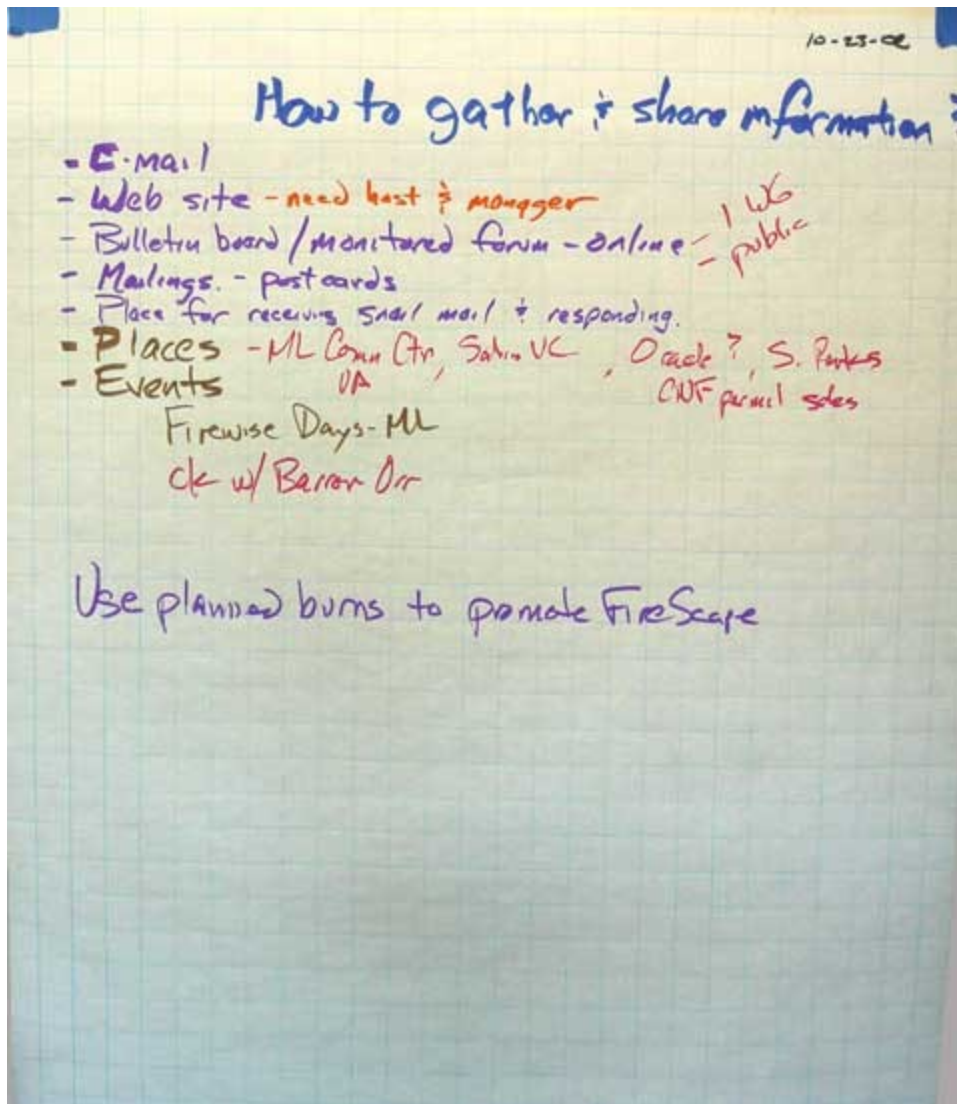 10-23-02
How to gather & share information ?
- E-mail
- Web site - need host & manager
- Bulletin board / monitored forum - online - 1 WG
- public
- Mailings. - postcards
- Place for receiving snail mail & responding.
- Places - ML Comm Ctr, Sabino VC, Oracle?, S. Parks
UA CNF permit sales
- Events
Firewise Days - ML
ck w/ Barron Orr
Use planned burns to promote FireScape